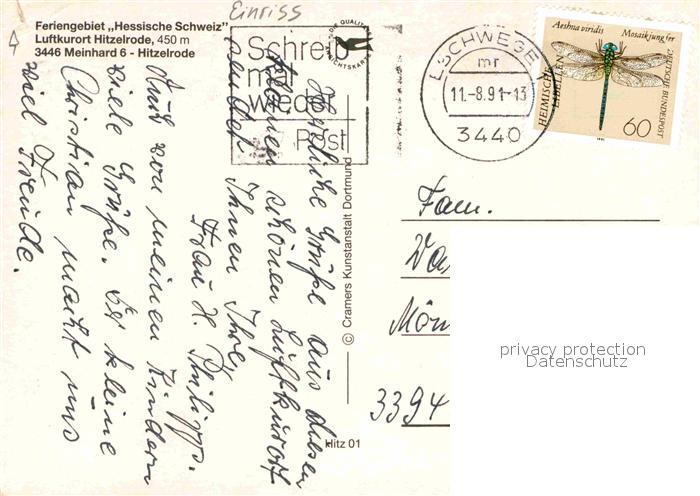 Einriss
Feriengebiet „Hessische Schweiz"
Luftkurort Hitzelrode, 450 m
3446 Meinhard 6 - Hitzelrode
DIE QUALITÄTS
ANSICHTSKARTE
Schreib
mal
wieder
Post
ESCHWEGE
mr
11.-8.91-13
3440
Aeshna viridis Mosaikjungfer
HEIMISCHE
LIBELLEN
DEUTSCHE BUNDESPOST
60
1991
Herzliche Grüße aus diesem
kleinen schönen Luftkurort
sendet Ihnen Ihre
Frau H. Philipp.
Auch von meinen Kindern
viele Grüße. Der kleine
Christian macht uns
viel Freude.
© Cramers Kunstanstalt Dortmund
Hitz 01
Fam.
3394
privacy protection
Datenschutz